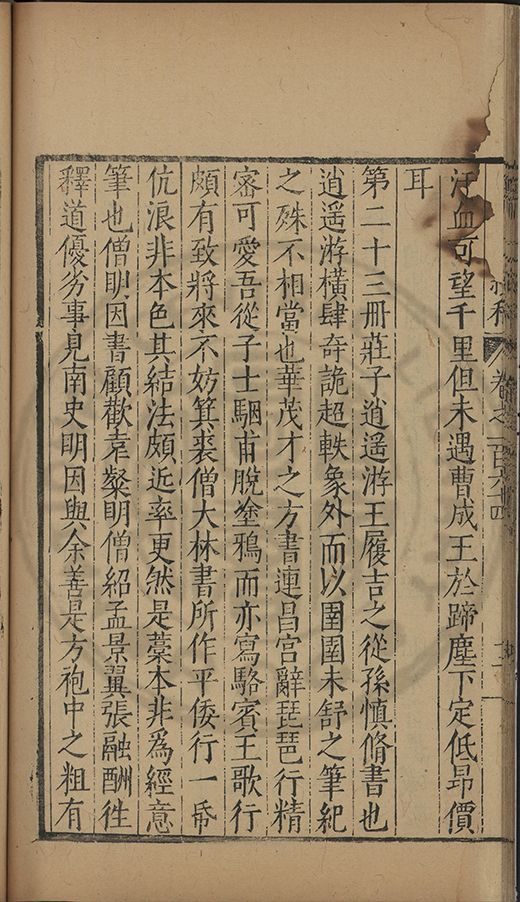 汗血可望千里但未遇曹成王於蹄塵下定低昂價
耳
第二十三册莊子逍遥游王履吉之從孫慎脩書也
逍遥游橫肆奇詭超軼象外而以圉圉未舒之筆紀
之殊不相當也華茂才之方書連昌宮辭琵琶行精
審可愛吾從子士駰甫脫塗鴉而亦寫駱賓王歌行
頗有致將來不妨箕裘僧大林書所作平倭行一帋
伉浪非本色其結法頗近率更然是藁本非爲經意
筆也僧明因書顧歡袁粲明僧紹孟景翼張融酬徃
釋道優劣事見南史明因與余善是方袍中之粗有
稿 卷之一百六十四